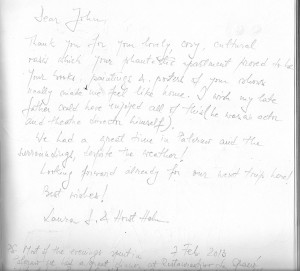 Dear John,
Thank you for your lovely, cosy, cultural
oasis which your plants-like apartment proved to be.
Your books, paintings & posters of your shows
really made us feel like home. I wish my late
father could have enjoyed all of this (he was actor
and theatre director himself).
We had a great time in and the
surroundings, despite the weather!
Looking forward already for our next trip here!
Best wishes!
Laura &
PS Most of the evenings spent in
7 Feb 2010
at